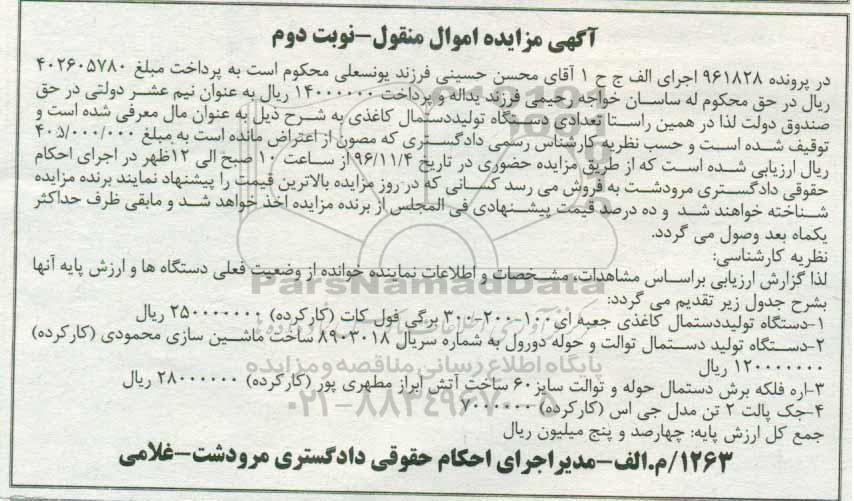 آگهی مزایده اموال منقول-نوبت دوم
در پرونده ۹۶۱۸۲۸ اجرای الف ج ح ۱ آقای محسن حسینی فرزند یونسعلی محکوم است به پرداخت مبلغ ۴۰۲۶۰۵۷۸۰
ریال در حق محکوم له ساسان خواجه رحیمی فرزند یداله و پرداخت ۱۴۰۰۰۰۰۰ ریال به عنوان نیم عشر دولتی در حق
صندوق دولت لذا در همین راستا تعدادی دستگاه تولیددستمال کاغذی به شرح ذیل به عنوان مال معرفی شده است و
توقیف شده است و حسب نظریه کارشناس رسمی دادگستری که مصون از اعتراض مانده است به مبلغ ۴۰۵/۰۰۰/۰۰۰
ریال ارزیابی شده است که از طریق مزایده حضوری در تاریخ ۹۶/۱۱/۴ از ساعت ۱۰ صبح الی ۱۲ظهر در اجرای احکام
حقوقی دادگستری مرودشت به فروش می رسد کسانی که در روز مزایده بالاترین قیمت را پیشنهاد نمایند برنده مزایده
شناخته خواهند شد و ده درصد قیمت پیشنهادی فی المجلس از برنده مزایده اخذ خواهد شد و مابقی ظرف حداکثر
یکماه بعد وصول می گردد.
نظریه کارشناسی:
لذا گزارش ارزیابی براساس مشاهدات، مشخصات و اطلاعات نماینده خوانده از وضعیت فعلی دستگاه ها و ارزش پایه آنها
ParsNamadData
بشرح جدول زیر تقدیم می گردد:
۱-دستگاه تولیددستمال کاغذی جعبه ای ۱۰۰-۲۰۰-۳۰۰ برگی فول کات (کارکرده) ۲۵۰۰۰۰۰۰۰ ریال
۲-دستگاه تولید دستمال توالت و حوله دورول به شماره سریال ۸۹۰۳۰۱۸ ساخت ماشین سازی محمودی (کارکرده)
۱۲۰۰۰۰۰۰۰ ریال
پایگاه اطلاع رسانی مناقصه و مزایده
۳-اره فلکه برش دستمال حوله و توالت سایز۶۰ ساخت آتش ابراز مطهری پور (کارکرده) ۲۸۰۰۰۰۰۰ ریال
۰۲۱-۸۸۳۴۹۶۷۰-۵
۴-جک پالت ۲ تن مدل جی اس (کارکرده) ۷۰۰۰۰۰۰
جمع کل ارزش پایه: چهارصد و پنج میلیون ریال
۱۲۶۳/م.الف-مدیراجرای احکام حقوقی دادگستری مرودشت-غلامی